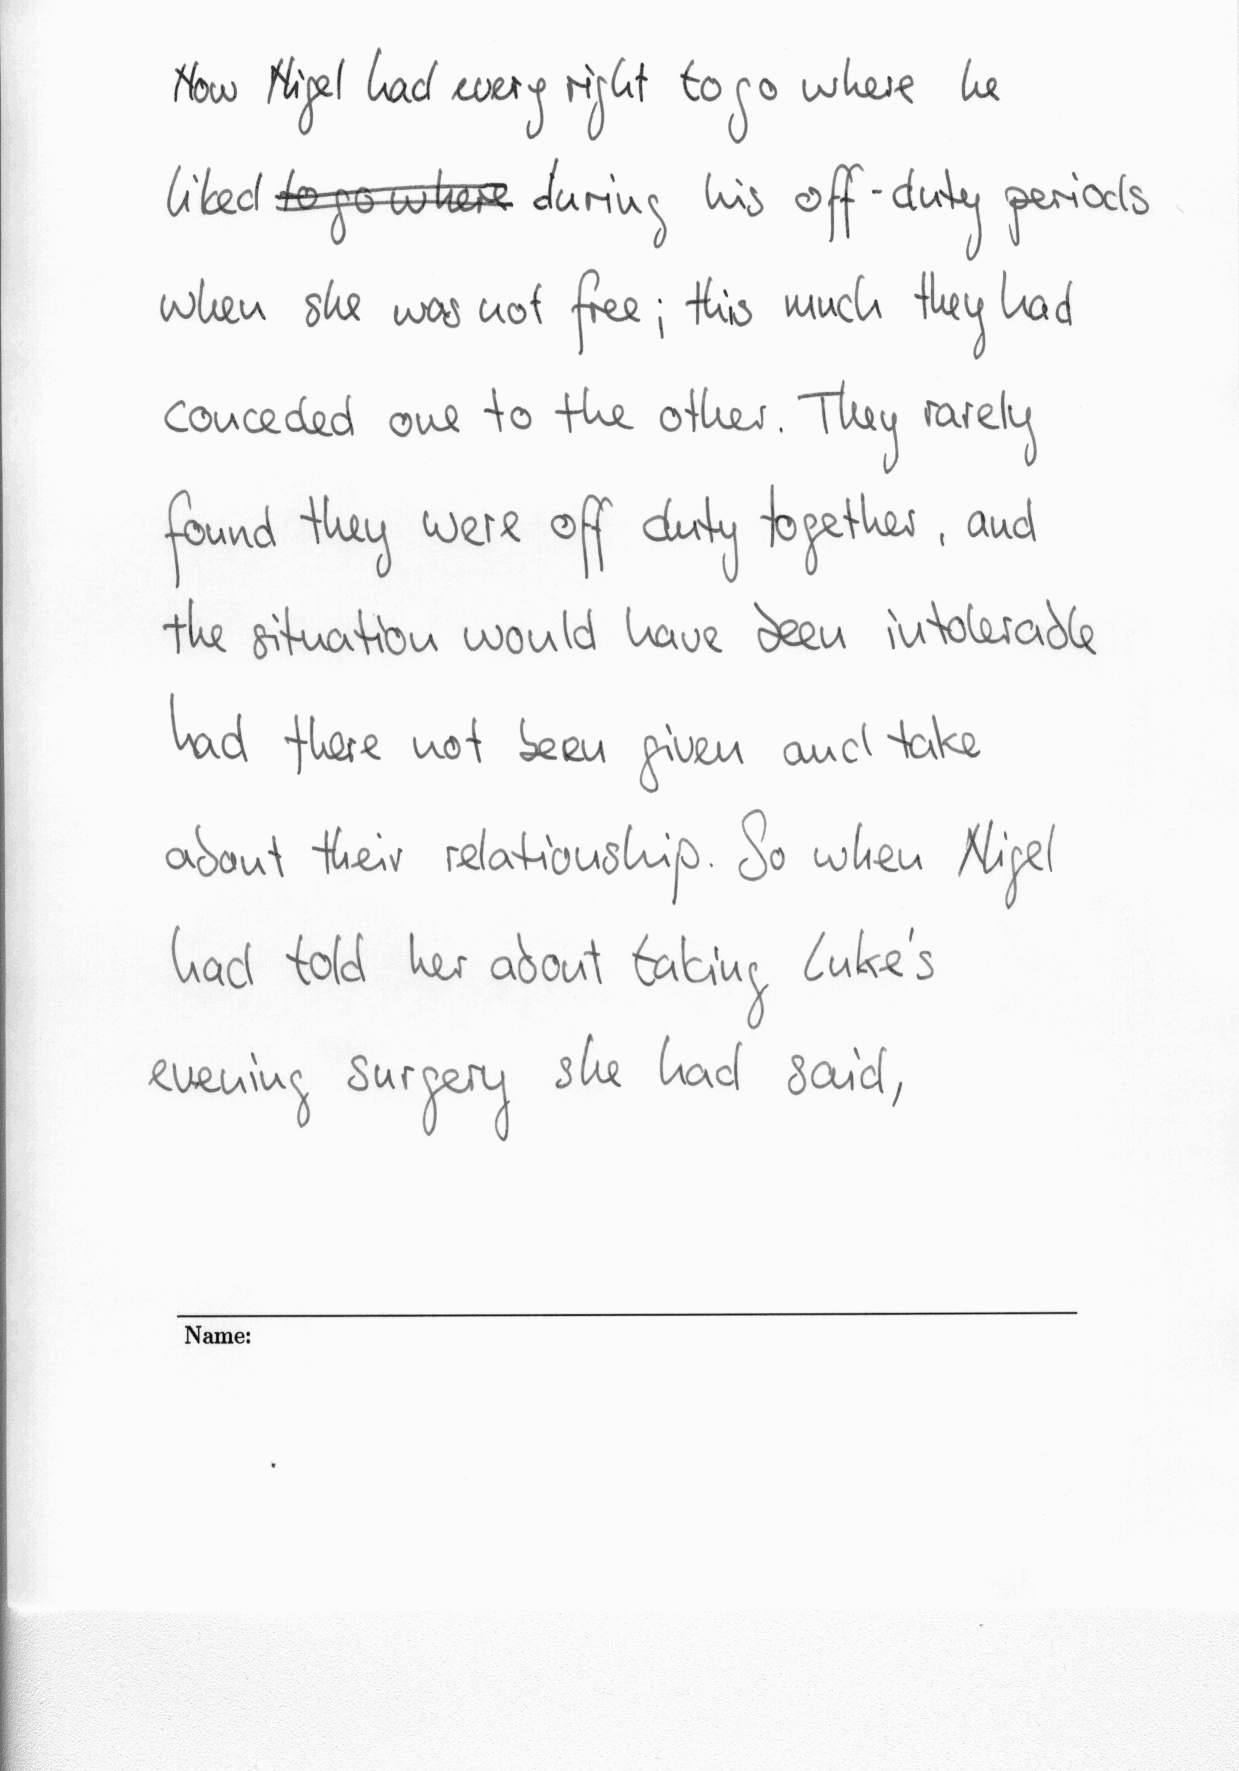 Now Nigel had every right to go where he
liked to go where during his off-duty periods
when she was not free; this much they had
conceded one to the other. They rarely
found they were off duty together, and
the situation would have been intolerable
had there not been given and take
about their relationship. So when Nigel
had told her about taking Luke's
evening surgery she had said,
Name: